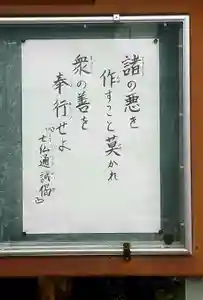 諸の悪を
作すこと莫かれ
衆の善を
奉行せよ
『七仏通誡偈』